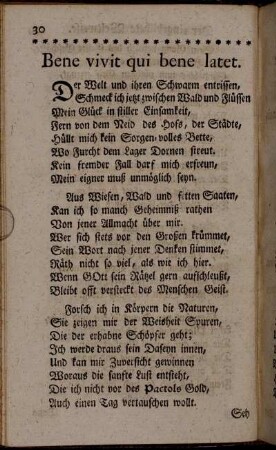 30
Bene vivit qui bene latet.
Der Welt und ihren Schwarm entrissen,
Schmeck ich jetzt zwischen Wald und Flüssen
Mein Glück in stiller Einsamkeit,
Fern von dem Neid des Hofs, der Städte,
Hüllt mich kein Sorgen-volles Bette,
Wo Furcht dem Lager Dornen streut.
Kein fremder Fall darf mich erfreun,
Mein eigner muß unmöglich seyn.
Aus Wiesen, Wald und fetten Saaten,
Kan ich so manch Geheimniß rathen
Von jener Allmacht über mir.
Wer sich stets vor den Großen krümmet,
Sein Wort nach jener Denken stimmet,
Räth nicht so viel, als wie ich hier.
Wenn GOtt sein Rätzel gern aufschleußt,
Bleibt offt versteckt des Menschen Geist.
Forsch ich in Körpern die Naturen,
So zeigen mir der Weisheit Spuren,
Die der erhabne Schöpfer geht;
Ich werde draus sein Daseyn innen,
Und kan mir Zuversicht gewinnen
Woraus die sanfte Lust entsteht,
Die ich nicht vor des Pactols Gold,
Auch einen Tag vertauschen wollt.
Sch